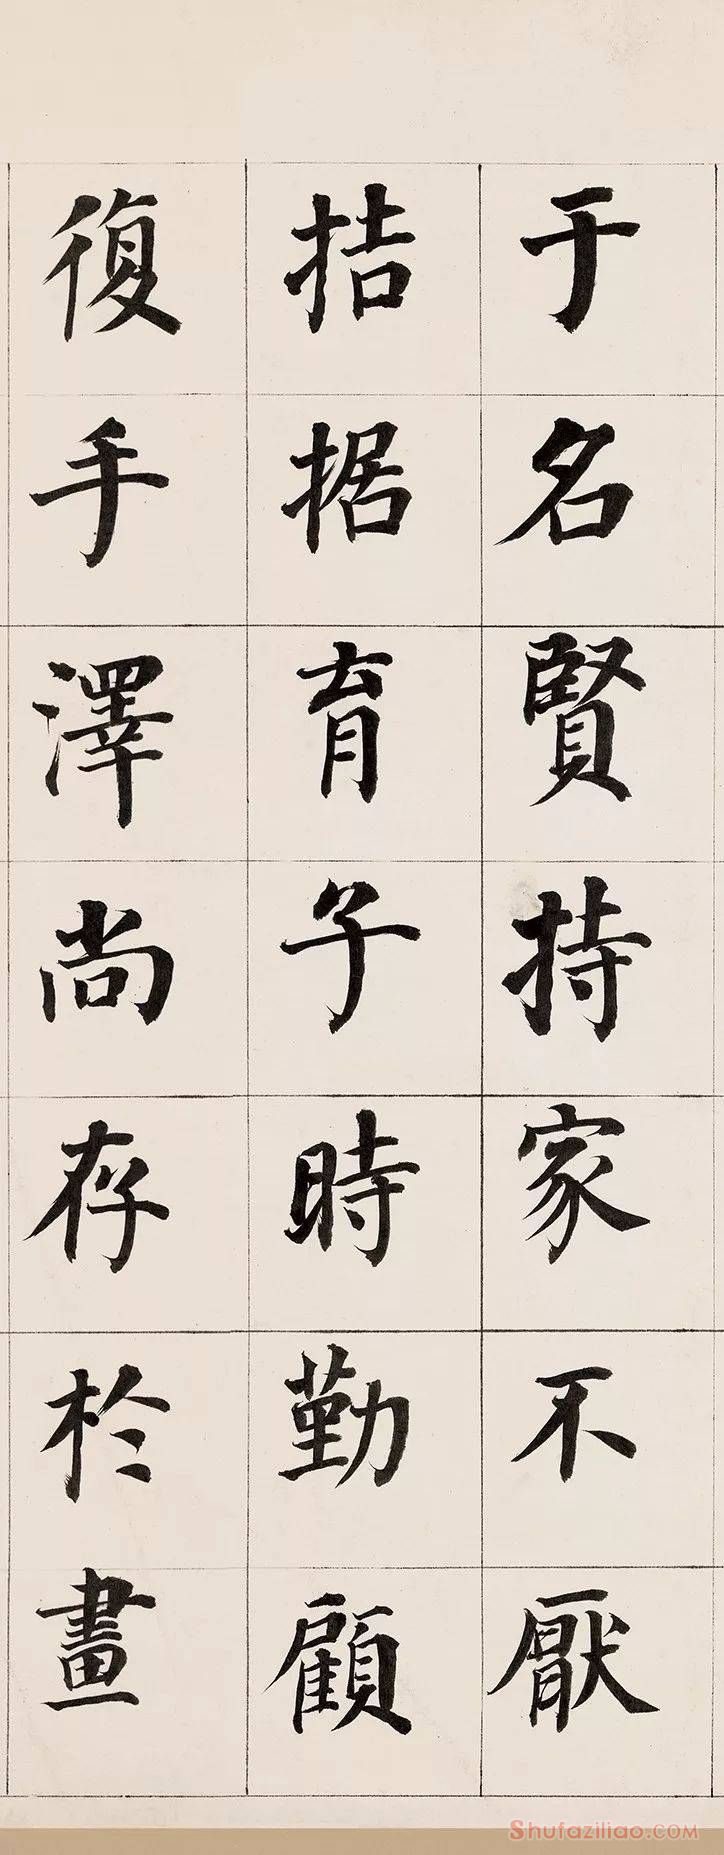 于名賢持家不厭
拮据育子時勤顧
復手澤尚存於畫
Shufaziliao.COM